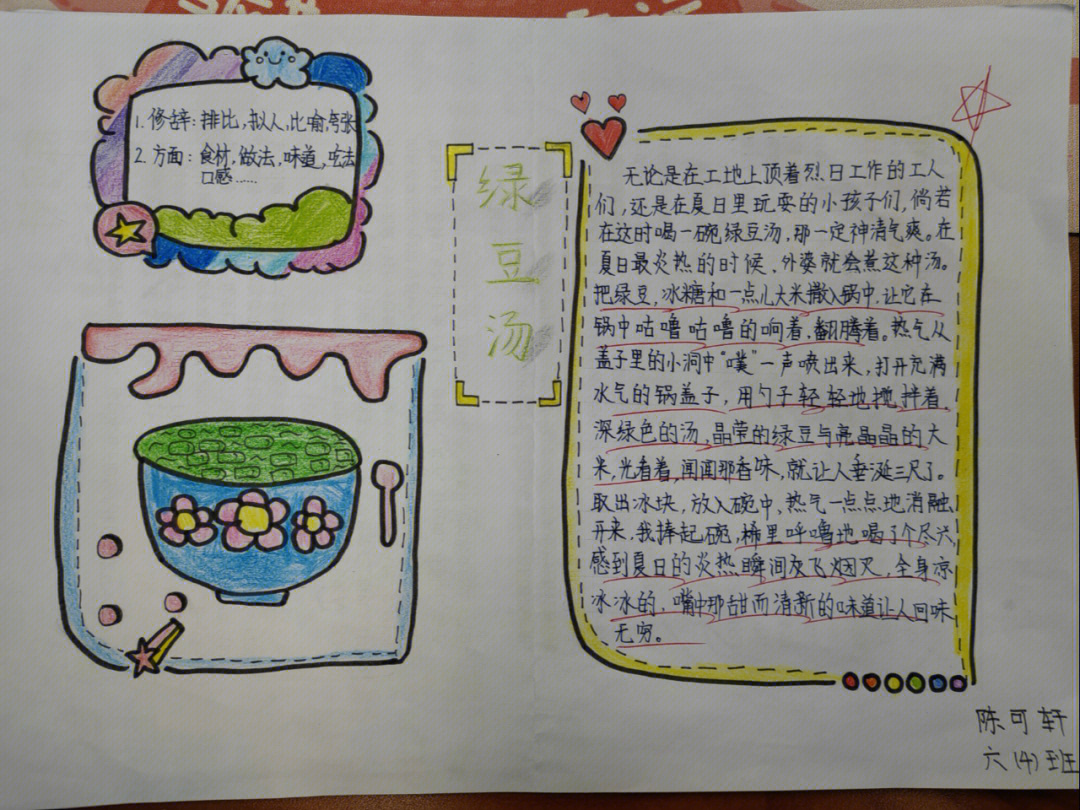 1. 修辞：排比，拟人，比喻，夸张
2. 方面：食材，做法，味道，吃法
口感……
绿豆汤
无论是在工地上顶着烈日工作的工人
们，还是在夏日里玩耍的小孩子们，倘若
在这时喝一碗绿豆汤，那一定神清气爽。在
夏日最炎热的时候，外婆就会煮这种汤。
把绿豆，冰糖和一点儿大米撒入锅中，让它在
锅中咕噜咕噜的响着，翻腾着。热气从
盖子里的小洞中“噗”一声喷出来，打开充满
水气的锅盖子，用勺子轻轻地搅拌着，
深绿色的汤，晶莹的绿豆与亮晶晶的大
米，光看着，闻闻那香味，就让人垂涎三尺了。
取出冰块，放入碗中，热气一点点地消融
开来，我捧起碗，稀里呼噜地喝了个尽兴，
感到夏日的炎热瞬间灰飞烟灭，全身凉
冰冰的，嘴中那甜而清新的味道让人回味
无穷。
陈可轩
六（4）班